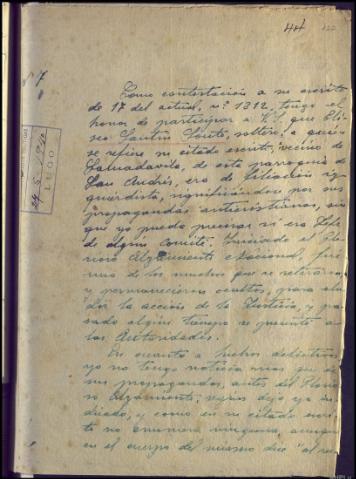 44
nº 7
Como contestación a su escrito
de 17 del actual, nº 1312, tengo el
honor de participar a V.S. que
seo Santín Souto, soltero, a quien
se refiere su citado escrito, vecino de
de esta parroquia de
San Andrés, era de filiación iz-
quierdista, significándose por sus
propagandas anticristianas, sin
que yo pueda precisar si era Jefe
de algún comité. Iniciado el Glo-
rioso Alzamiento Nacional, fué
uno de los muchos que se retiraron
y permanecieron ocultos, para elu-
dir la acción de la Justicia, y pa-
sado algún tiempo se presentó a
las Autoridades.
En cuanto a hechos delictivos
yo no tengo noticia mas que de
sus propagandas, antes del Glorio-
so Alzamiento, según dejo ya in-
dicado, y como en su citado escri-
to no enumera ninguno, aunque
en el cuerpo del mismo dice "al
LUGO